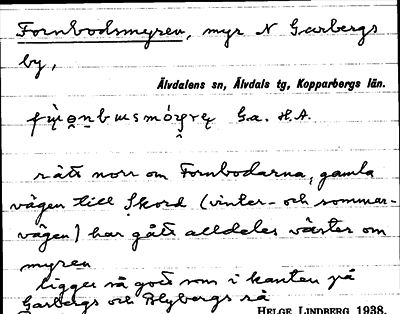 Fornbodsmyren, myr N Garbergs
by,
Älvdalens sn, Älvdals tg, Kopparbergs län.
G.a. H.A.
rätt norr om Fornbodarna, gamla
vägen till Skord (vinter- och sommar-
vägen) har gått alldeles väster om
myren
ligger så gott som i kanten på
Garbergs och Blybergs rå
HELGE LINDBERG 1938.